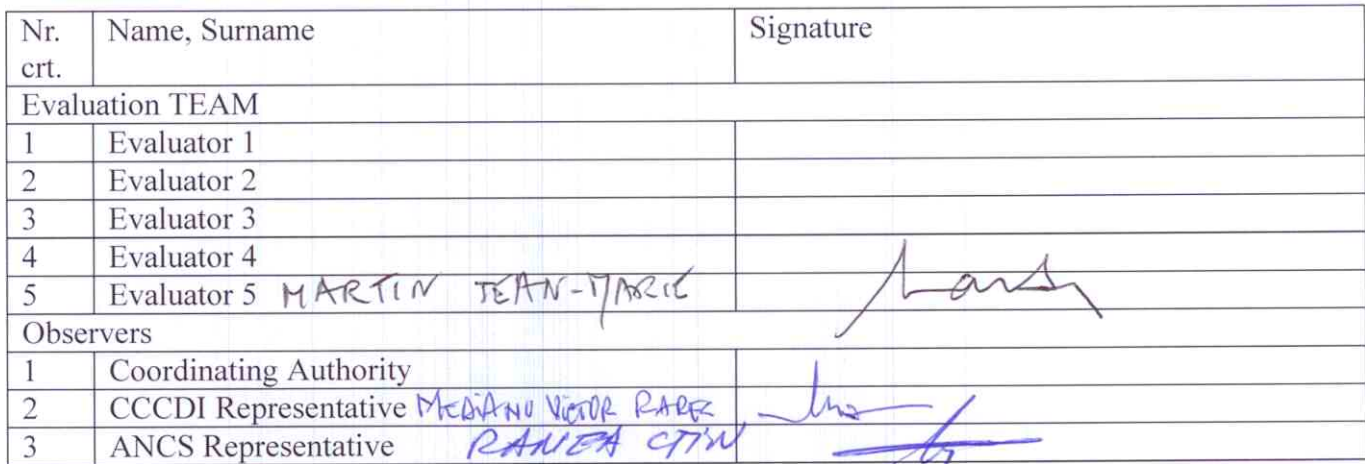 Nr. crt. Name, Surname Signature
Evaluation TEAM
1 Evaluator 1
2 Evaluator 2
3 Evaluator 3
4 Evaluator 4
5 Evaluator 5 MARTIN JEAN-MARIE
Observers
1 Coordinating Authority
2 CCCDI Representative VICTOR
3 ANCS Representative RANEA